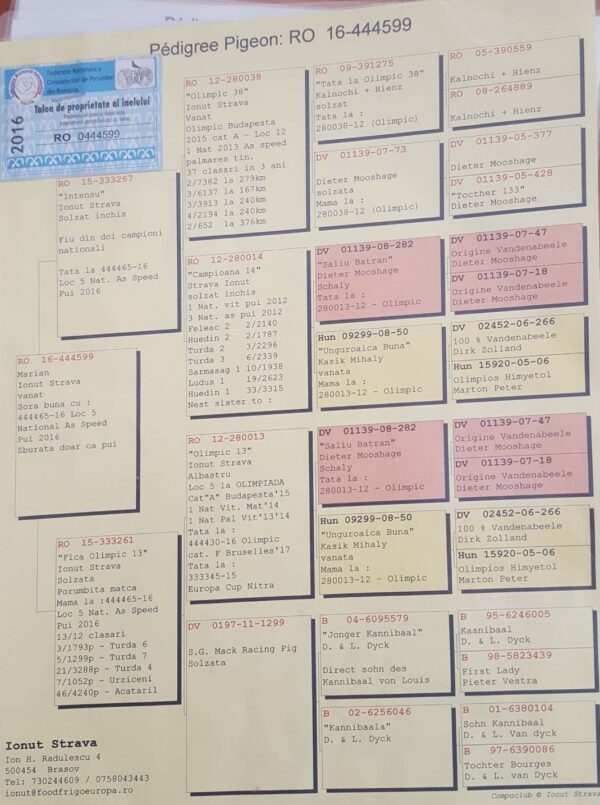 Pédigree Pigeon: RO 16-444599
Federatia Nationala a
Crescatorilor de Porumbei
din Romania
Talon de proprietate al inelului
2016
RO 0444599
RO 16-444599
Marian
Ionut Strava
vanat
Sora buna cu :
444465-16 Loc 5
National As Speed
Pui 2016
Zburata doar ca pui
RO 15-333267
"Intensu"
Ionut Strava
Solzat inchis
Fiu din doi campioni
nationali
Tata la 444465-16
Loc 5 Nat. As Speed
Pui 2016
RO 15-333261
"Fica Olimpic 13"
Ionut Strava
Solzata
Porumbita matca
Mama la :444465-16
Loc 5 Nat. As Speed
Pui 2016
13/12 clasari
3/1793p - Turda 6
5/1299p - Turda 7
21/3288p - Turda 4
7/1052p - Urziceni
46/4240p - Acataril
RO 12-280038
"Olimpic 38"
Ionut Strava
Vanat
Olimpic Budapesta
2015 cat A - Loc 12
1 Nat 2013 As speed
palmares tin.
37 clasari in 3 ani
2/7382 la 279km
3/6137 la 167km
3/3913 la 240km
4/2194 la 240km
2/652 la 376km
RO 12-280014
"Campioana 14"
Strava Ionut
solzat inchis
1 Nat. vit pui 2012
3 Nat. as pui 2012
Feleac 2 2/2140
Huedin 2 2/1787
Turda 2 3/2296
Turda 3 6/2339
Sarmasag 1 10/1938
Ludus 1 19/2623
Huedin 1 33/3315
Nest sister to :
RO 12-280013
"Olimpic 13"
Ionut Strava
Albastru
Loc 5 la OLIMPIADA
Cat"A" Budapesta'15
1 Nat Vit. Mat'14
1 Nat Pal Vit'13'14
Tata la :
444430-16 Olimpic
cat. F Bruselles'17
Tata la :
333345-15
Europa Cup Nitra
DV 0197-11-1299
S.G. Mack Racing Pig
Solzata
RO 09-391275
"Tata la Olimpic 38"
Kalnochi + Hienz
solzat
Tata la :
280038-12 (Olimpic)
DV 01139-07-73
Dieter Mooshage
solzata
Mama la :
280038-12 (Olimpic)
DV 01139-08-282
"Saliu Batran"
Dieter Mooshage
Schaly
Tata la :
280013-12 - Olimpic
Hun 09299-08-50
"Unguroaica Buna"
Kasik Mihaly
vanata
Mama la :
280013-12 - Olimpic
DV 01139-08-282
"Saliu Batran"
Dieter Mooshage
Schaly
Tata la :
280013-12 - Olimpic
Hun 09299-08-50
"Unguroaica Buna"
Kasik Mihaly
vanata
Mama la :
280013-12 - Olimpic
B 04-6095579
"Jonger Kannibaal"
D. & L. Dyck
Direct sohn des
Kannibaal von Louis
B 02-6256046
"Kannibaala"
D. & L. Dyck
RO 05-390559
Kalnochi + Hienz
RO 08-264889
Kalnochi + Hienz
DV 01139-05-377
Dieter Mooshage
DV 01139-05-428
"Tocther 133"
Dieter Mooshage
DV 01139-07-47
Origine Vandenabeele
Dieter Mooshage
DV 01139-07-18
Origine Vandenabeele
Dieter Mooshage
DV 02452-06-266
100 % Vandenabeele
Dirk Zolland
Hun 15920-05-06
Olimpios Himyetol
Marton Peter
DV 01139-07-47
Origine Vandenabeele
Dieter Mooshage
DV 01139-07-18
Origine Vandenabeele
Dieter Mooshage
DV 02452-06-266
100 % Vandenabeele
Dirk Zolland
Hun 15920-05-06
Olimpios Himyetol
Marton Peter
B 95-6246005
Kaanibaal
D. & L. Dyck
B 98-5823439
First Lady
Pieter Vestra
B 01-6380104
Sohn Kannibaal
D. & L. Van dyck
B 97-6390086
Tochter Bourges
D. & L. van Dyck
Ionut Strava
Ion H. Radulescu 4
500454 Brasov
Tel: 730244609 / 0758043443
ionut@foodfrigoeuropa.ro
Compuclub © Ionut Strava